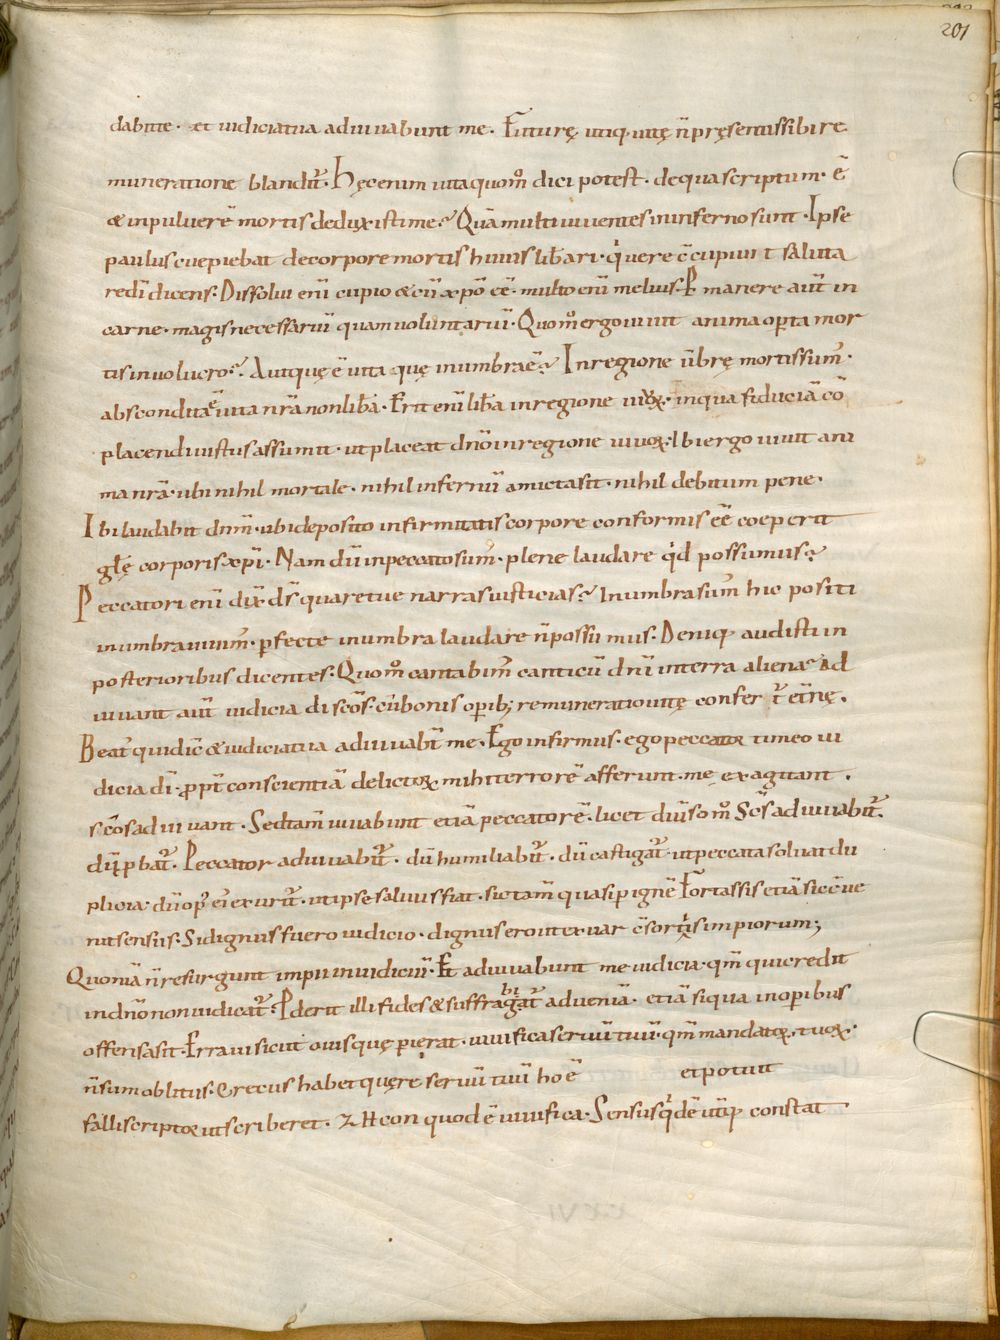 201
dabitte · et iudiciatua adiuuabunt me · Futurę utiq; uitę n̄ pręsentis sibi re
muneratione blandit̄ · Hęc enim uita quom̊ dici potest · dequascriptum · ē
& inpuluerē mortis deduxisti me? Quā multi uiuentes ininferno sunt · Ipse
paulus cuepiebat decorpore mortis huius lib̄ari · q̇uere c̄cupiuit saluta
redn̄i dicens: Dissolui enī cupio & cū xp̄o eē · multo enī melius: P manere aut̄ in
carne · magis necessariū quam uoluntariū · Quom̊ ergo uiuit anima op̄ta mor
tis inuolucro? Aut quę ē uita quę inumbra ē? Inregione ūbrę mortis sum̄ ·
absconditaē uita nr̄a non lib̄a · Erit enī lib̄a inregione uiuoꝝ · inqua fiduciā cō
placendi iustus assumit · ut placeat dn̄o inregione uiuoꝝ: Ibi ergo uiuit ani
ma nr̄a · ubi nihil mortale · nihil infernū amictasit · nihil debitum pene ·
Ibi laudabit dn̄m · ubi deposito infirmitatis corpore conformis eē coeperit
gl̄ę corporis xp̄i · Nam dū inpeccato sum̄ · plene laudare qi̇d possumus?
Peccatori enī dix̄ ds̄ quaretue narras iusticias? Inumbra sum̄ hic positi
inumbra uiuim̄ · p̄fecte inumbra laudare n̄ possu mus: Deniq; audisti in
posterioribus dicentes: Quom̊ cantabim̄ canticū dn̄i interra aliena? Ad
iuuant aut̄ iudicia di scōs: cū bonis op̄ib; remuneratio uitę confer t̄ etn̄ę ·
Beat' qui dic̄ & iudiciatua adiuuab̄t me · Ego infirmus · ego peccator timeo iu
dicia dī · ꝓpt̄ conscientiā delictoꝝ mihi terrorē afferunt · me exagitant ·
sc̄os adiuuant · Sed tam̄ iuuabunt etiā peccatorē · licet diu͞som̊ Sc̄s adiuuabit̄ ·
dū ꝓbat̄ · Peccator adiuuabit̄ · dū humiliabit̄ · dū castigat̄ · ut peccata soluat du
plicia · dū op' ei' exurit̄ · ut ipse saluus fiat · sic tam̄ quasi ꝑ ignē Fortassis etiā sic c̄ue
nit sensus: Si dignus fuero iudicio · dignus ero ut exuar c̄sortiis impiorum;
Quoniā n̄ resurgunt impii in iudiciū · Et adiuuabunt me iudicia · qm̄ qui credit
in dn̄o non iudicat̄ · P̄derit illi fides & suffragabit̄ adueniā · etiā siqua in op̄ibus
offensa sit · Erraui sicut ouis quę perierat · uiuifica seruū tuū · qm̄ mandatoꝝ tuoꝝ ·
n̄ sum oblitus: Grecus habet quęre seruū tuū ho ē et potuit
falli scriptor ut scriberet · ZHCON quod ē uiuifica · Sensus qi̇dē utiq; constat